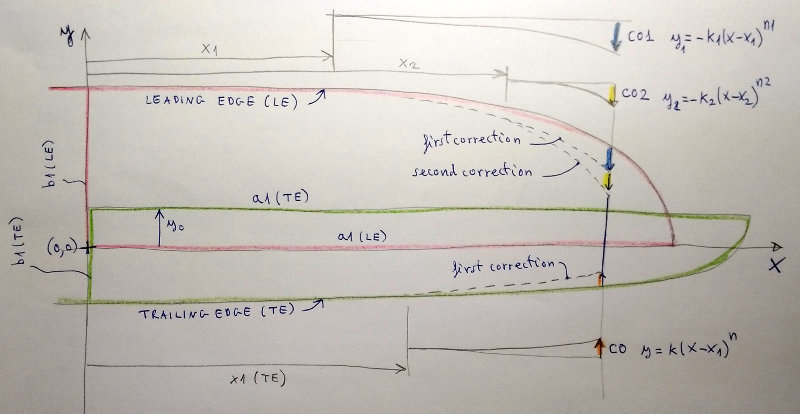 y
x1
CO1 y₁=-k1(x-x1)^n1
x2
CO2 y₂=-k2(x-x2)^n2
LEADING EDGE (LE)
first correction
second correction
b1(LE)
a1(TE)
y₀
(0,0)
a1(LE)
b1(TE)
X
first correction
TRAILING EDGE (TE)
CO y=k(x-x1)^n
x1(TE)